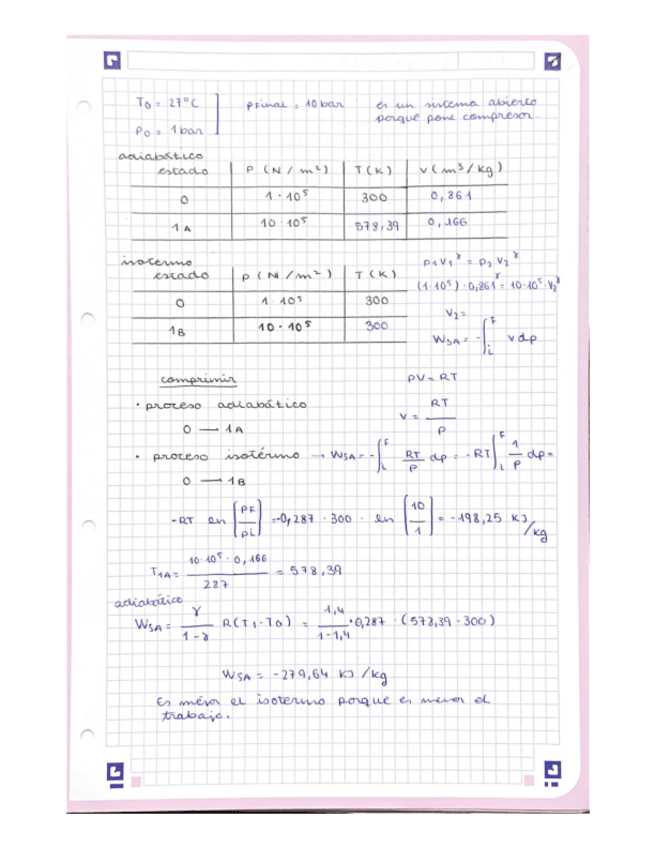 T0 = 27°C
P0 = 1 bar
Pfinal = 10 bar
es un sistema abierto
porque pone compresor.
adiabático
estado P (N/m²) T(K) v(m³/kg)
0 1·10⁵ 300 0,861
1A 10·10⁵ 578,39 0,166
isotermo
estado P (N/m²) T(K)
0 1·10⁵ 300
1B 10·10⁵ 300
P1V1^γ = P2V2^γ
(1·10⁵)·0,861^γ = 10·10⁵·V2^γ
V2=
WSA = -∫_i^F v dp
comprimir
· proceso adiabático
0 — 1A
PV = RT
V = RT/P
· proceso isotérmo → WSA = -∫_i^F RT/P dp = -RT ∫_i^F 1/P dp =
0 — 1B
-RT ln [PF/Pi] = -0,287 · 300 · ln [10/1] = -198,25 KJ/kg
T1A = 10·10⁵·0,166/287 = 578,39
adiabático
WSA = γ/1-γ R(T1-T0) = 1,4/1-1,4 · 0,287 · (578,39 - 300)
WSA = -279,64 KJ/kg
Es mejor el isotermo porque es menor el
trabajo.